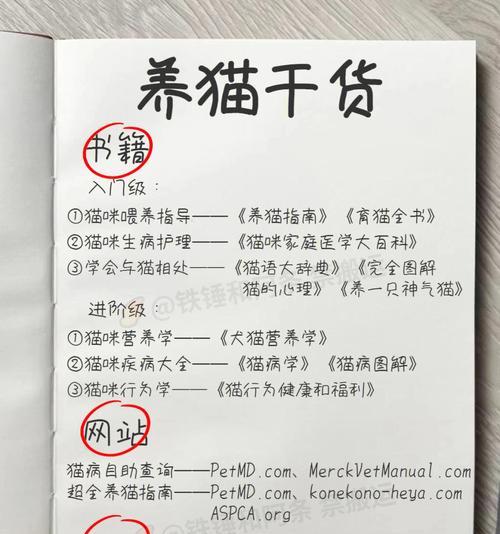 养猫干货
书籍
入门级：
①猫咪喂养指导——《养猫指南》《育猫全书》
②猫咪生病护理——《猫咪家庭医学大百科》
③学会与猫相处——《猫语大辞典》《完全图解
猫的心理》《养一只神气猫》
进阶级：
①猫咪营养学——《犬猫营养学》
②猫咪疾病大全——《猫病学》《猫病图解》
③猫咪行为学——《猫行为健康和福利》
网站
猫病自助查询——PetMD.com、MerckVetManual.com
超全养猫指南——PetMD.com、konekono-heya.com
ASPCA.org